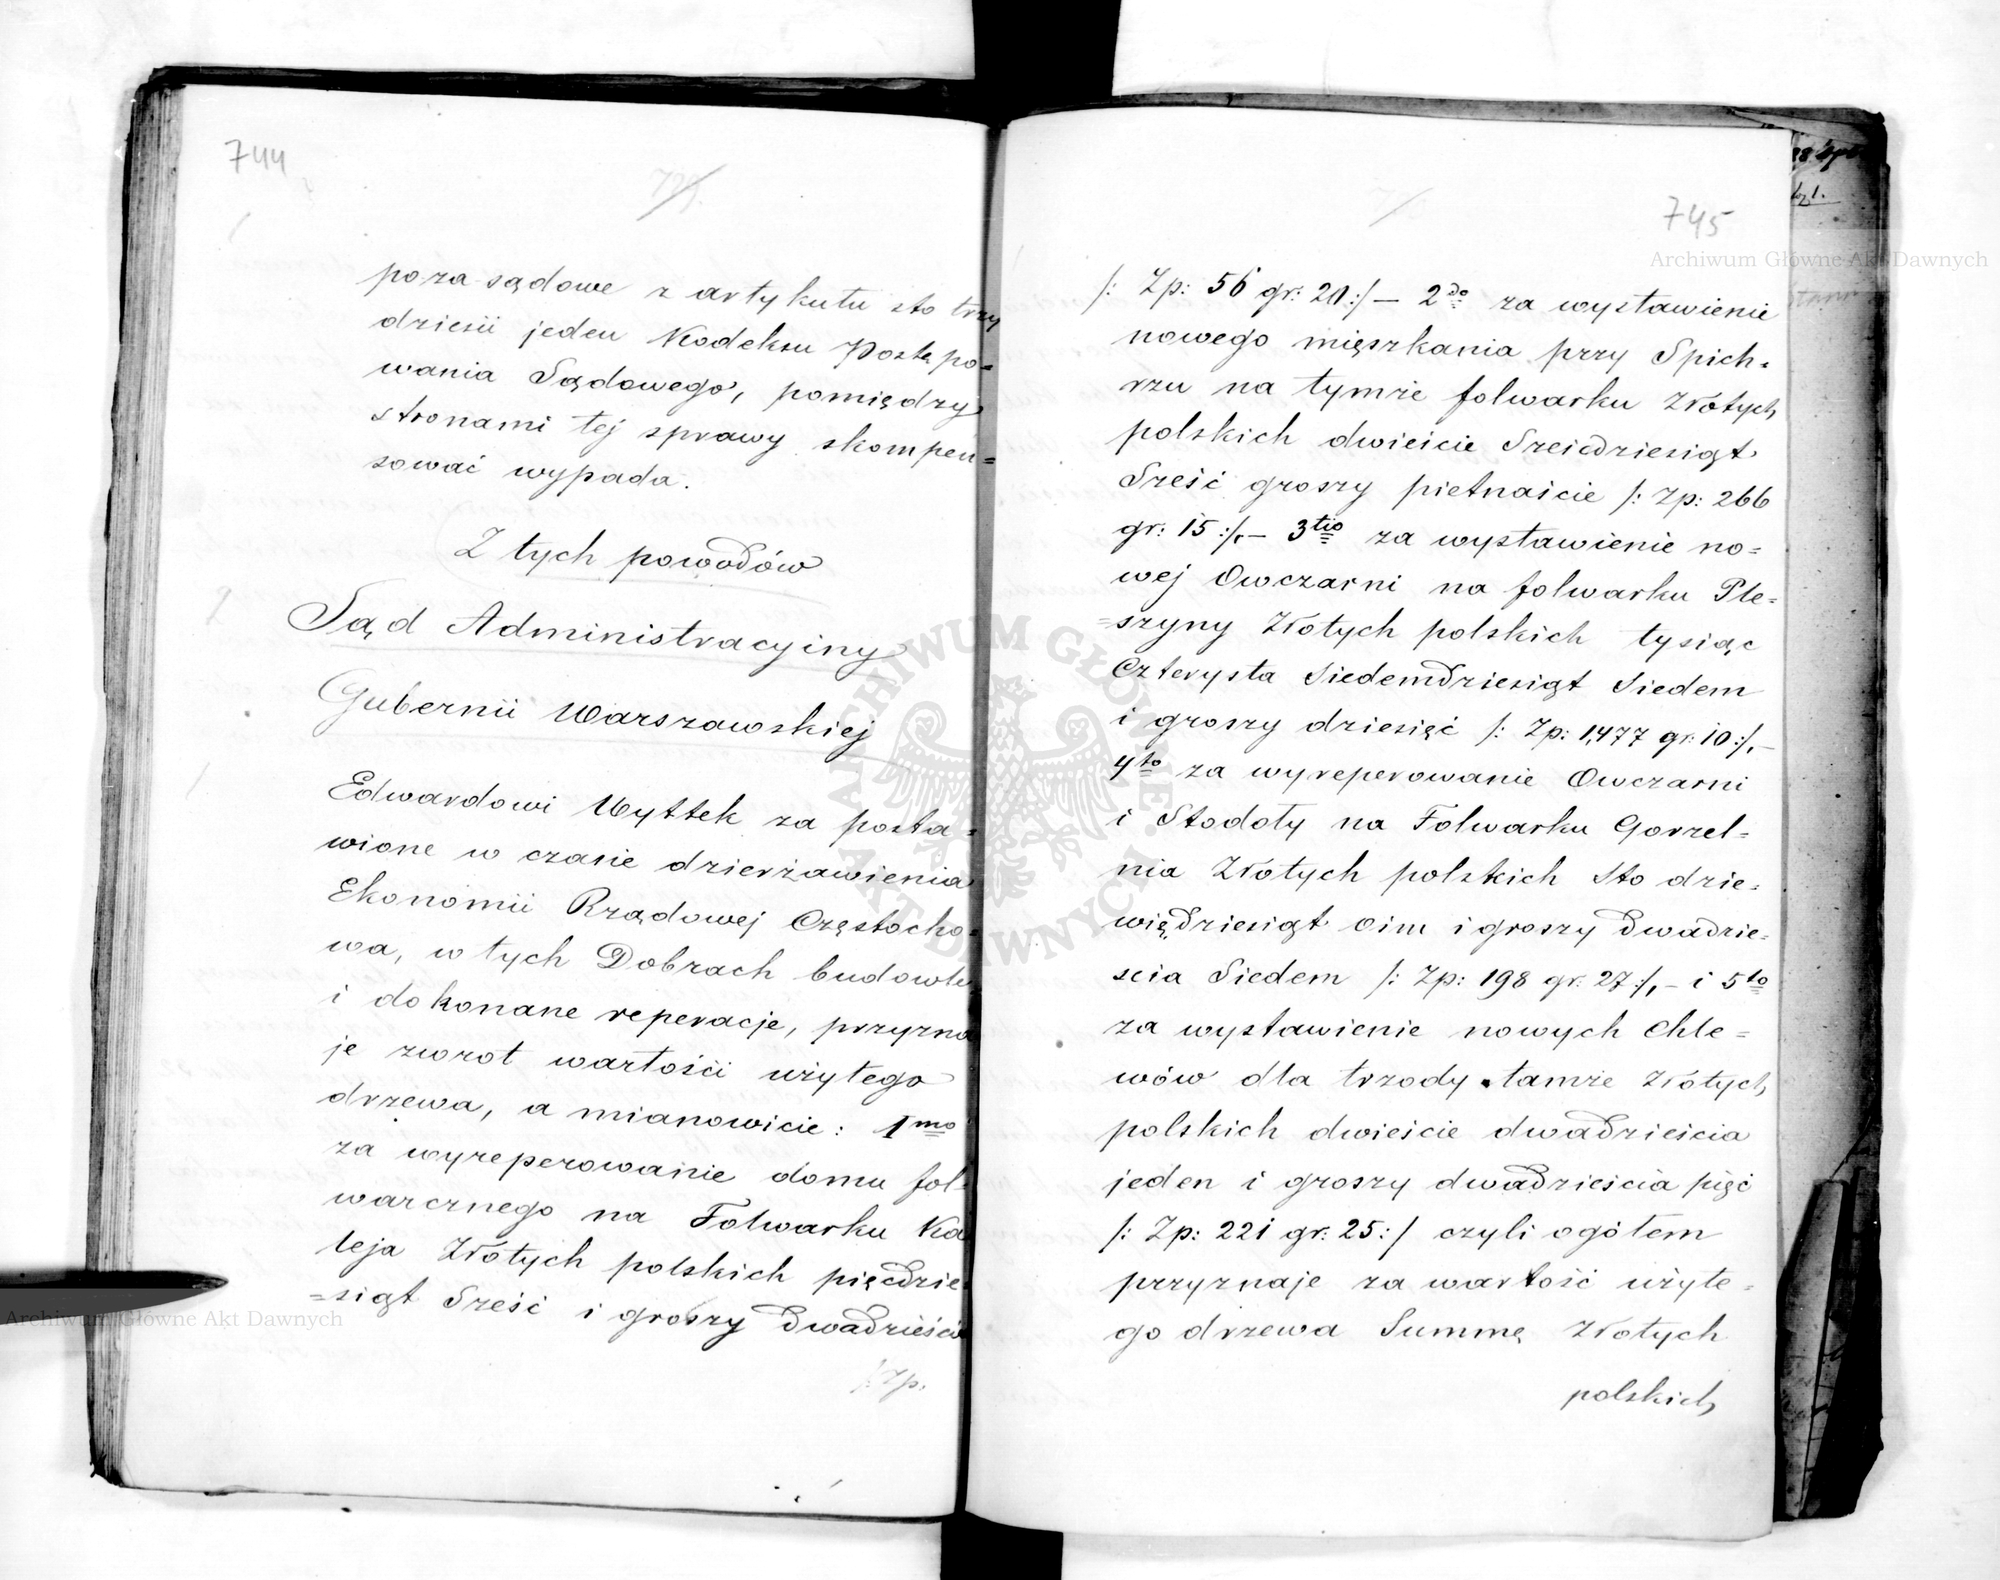 744
729.
poza sądowe z artykułu sto trzy
dziesii jeden Kodeksu Postępo=
wania Sądowego, pomiędzy
stronami tej sprawy skompen=
sować wypada.
Z tych powodów
Sąd Administracyiny
Gubernii Warszawskiej
Edwardowi Wyttek za posta=
wione w czasie dzierżawienia
Ekonomii Rządowej Częstocho=
wa, w tych Dobrach budowle
i dokonane reperacje, przyzna
je zwrot wartości użytego
drzewa, a mianowicie: 1mo
za wyreperowanie domu fol=
warcznego na Folwarku Ka
leja Złotych polskich pięćdzie=
=siąt Sześć i groszy dwadzieścia
/:Zp.
745
/: Zp: 56 gr: 20:/ — 2do za wystawienie
nowego mięszkania przy Spich=
rzu na tymże folwarku Złotych
polskich dwieście Sześćdziesiąt
Sześć groszy pietnaście /: Zp: 266
gr: 15:/,— 3tio za wystawienie no=
wej Owczarni na folwarku Ple=
=szyny Złotych polskich tysiąc
Czterysta Siedemdziesiąt Siedem
i groszy dziesięć /: Zp: 1,477 gr: 10:/,—
4to za wyreperowanie Owczarni
i Stodoły na Folwarku Gorzel=
nia Złotych polskich Sto dzie=
więdziesiąt ośm i groszy dwadzie=
scia Siedem /: Zp: 198 gr: 27:/,— i 5to
za wystawienie nowych Chle=
wów dla trzody tamże Złotych
polskich dwieście dwadzieścia
jeden i groszy dwadzieścia pięć
/: Zp: 221 gr: 25:/ czyli ogółem
przyznaje za wartość użyte=
go drzewa Summę Złotych
polskich
Archiwum Główne Akt Dawnych
Archiwum Główne Akt Dawnych
ARCHIWUM GŁÓWNE AKT DAWNYCH